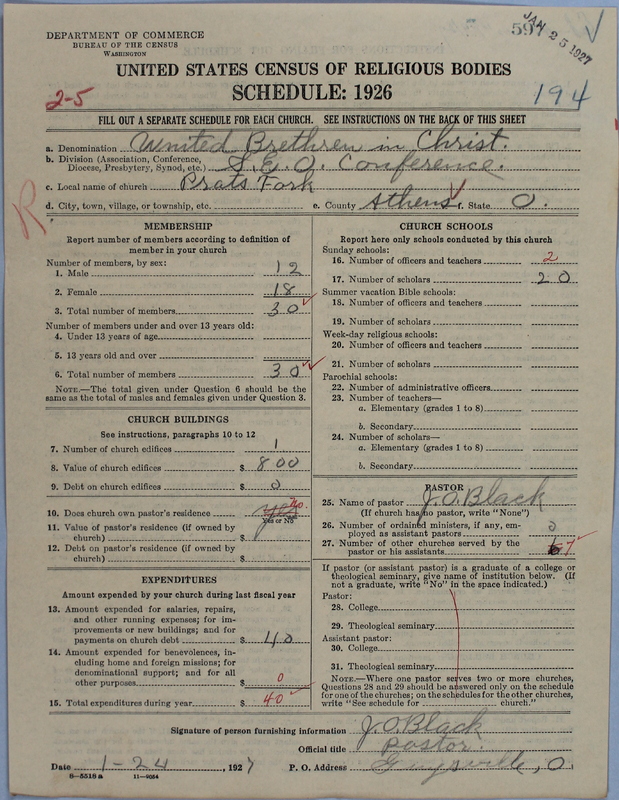 DEPARTMENT OF COMMERCE
BUREAU OF THE CENSUS
WASHINGTON
JAN 25 1927
UNITED STATES CENSUS OF RELIGIOUS BODIES
SCHEDULE: 1926
2-5
194
FILL OUT A SEPARATE SCHEDULE FOR EACH CHURCH. SEE INSTRUCTIONS ON THE BACK OF THIS SHEET
a. Denomination United Brethren in Christ.
b. Division (Association, Conference,
Diocese, Presbytery, Synod, etc.) S. E. O. Conference.
c. Local name of church Prats Fork
d. City, town, village, or township, etc. e. County Athens f. State O.
R
MEMBERSHIP
Report number of members according to definition of
member in your church
Number of members, by sex:
1. Male 12
2. Female 18
3. Total number of members 30
Number of members under and over 13 years old:
4. Under 13 years of age
5. 13 years old and over
6. Total number of members 30
NOTE.—The total given under Question 6 should be the
same as the total of males and females given under Question 3.
CHURCH BUILDINGS
See instructions, paragraphs 10 to 12
7. Number of church edifices 1
8. Value of church edifices $ 800
9. Debt on church edifices $ 0
10. Does church own pastor's residence yes No.
Yes or No
11. Value of pastor's residence (if owned by
church) $
12. Debt on pastor's residence (if owned by
church) $
EXPENDITURES
Amount expended by your church during last fiscal year
13. Amount expended for salaries, repairs,
and other running expenses; for im-
provements or new buildings; and for
payments on church debt $ 40
14. Amount expended for benevolences, in-
cluding home and foreign missions; for
denominational support; and for all
other purposes $ 0
15. Total expenditures during year $ 40
CHURCH SCHOOLS
Report here only schools conducted by this church
Sunday schools:
16. Number of officers and teachers 2
17. Number of scholars 20
Summer vacation Bible schools:
18. Number of officers and teachers
19. Number of scholars
Week-day religious schools:
20. Number of officers and teachers
21. Number of scholars
Parochial schools:
22. Number of administrative officers
23. Number of teachers—
a. Elementary (grades 1 to 8)
b. Secondary
24. Number of scholars—
a. Elementary (grades 1 to 8)
b. Secondary
PASTOR
25. Name of pastor J. O. Black
(If church has no pastor, write "None")
26. Number of ordained ministers, if any, em-
ployed as assistant pastors 0
27. Number of other churches served by the
pastor or his assistants 7
If pastor (or assistant pastor) is a graduate of a college or
theological seminary, give name of institution below. (If
not a graduate, write "No" in the space indicated.)
Pastor:
28. College
29. Theological seminary
Assistant pastor:
30. College
31. Theological seminary
NOTE.—Where one pastor serves two or more churches,
Questions 28 and 29 should be answered only on the schedule
for one of the churches; on the schedules for the other churches,
write "See schedule for church."
Signature of person furnishing information J. O. Black
Official title Pastor.
Date 1-24, 1927 P. O. Address Guysville, O.
8—5518a 11—9084